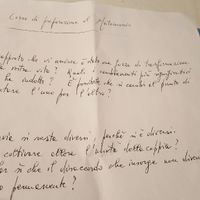 Corso di preparazione al Matrimonio
rapporto che vi unisce è stato una forza di trasformazione
la vostra vita? Quali i cambiamenti più significativi
ha indotto? È possibile che si cambi il punto di
l'uno per l'altro?
si resta diversi, perché si è diversi.
coltivare allora l'unità della coppia?
sì che il disaccordo che insorge non diven
permanente?